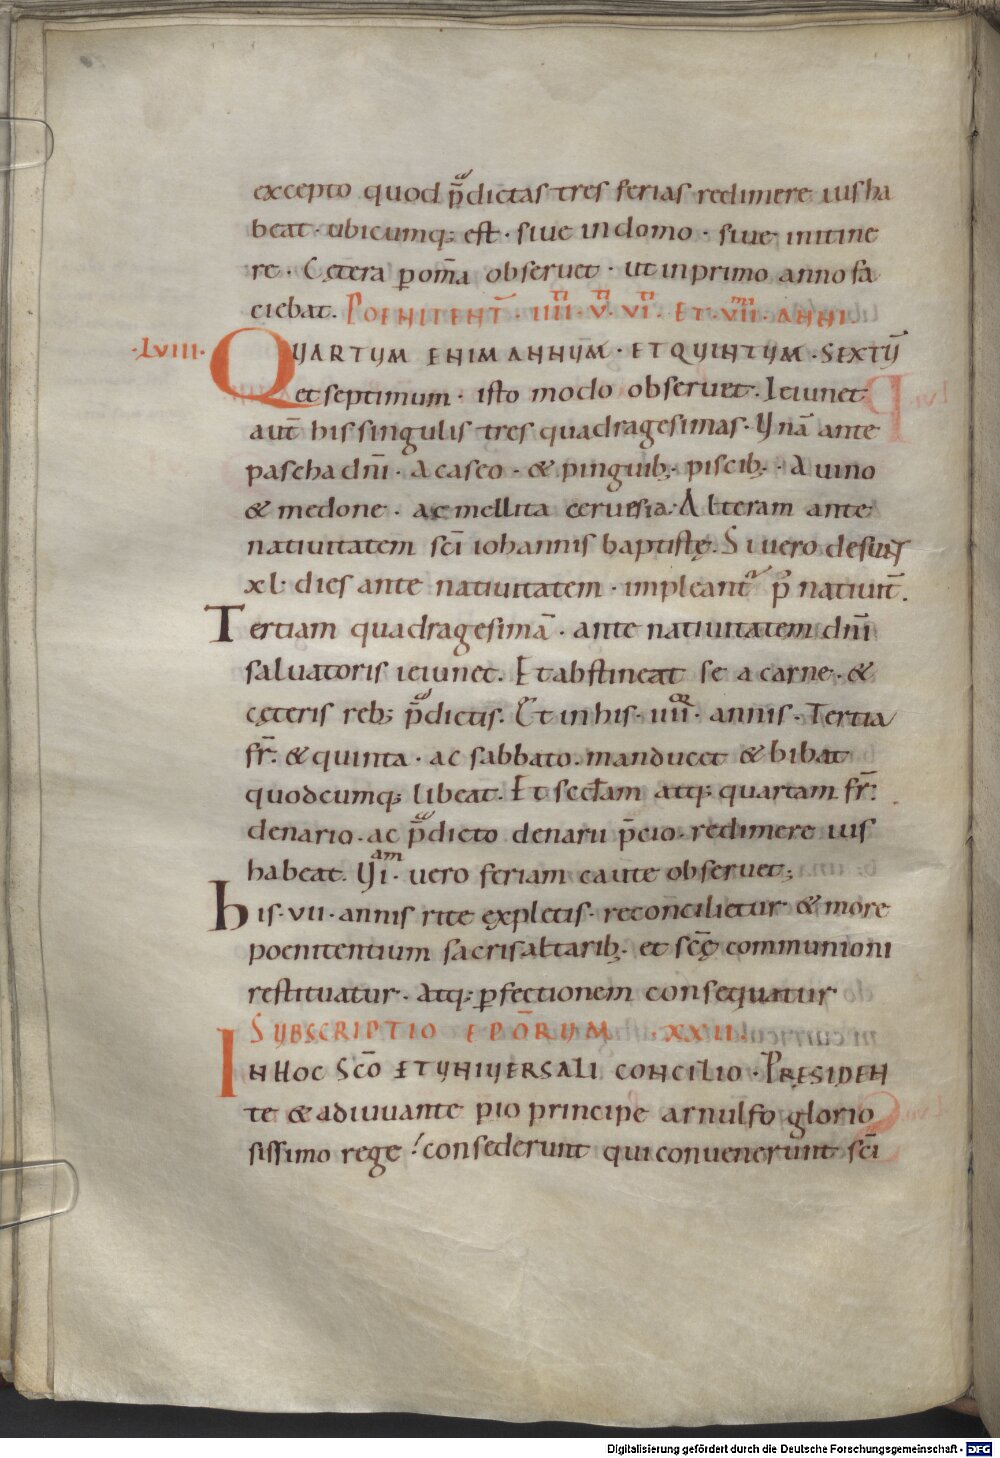 excepto quod p̄dictas tres ferias redimere ius ha
beat · ubicumq; est · siue in domo · siue in itine
re · Cetera p om̄a obseruet · ut in primo anno fa
ciebat. POENITENT̄ · IIII · V · VI · ET · VII · ANNI ·
·LVIII· QUARTUM ENIM ANNUM̄ · ET QUINTUM · SEXTŪ
et septimum · isto modo obseruet. Ieiunet
aut̄ his singulis tres quadragesimas. Unā ante
pascha dn̄i · A caseo · & pinguib; · piscib; · A uino
& medone · ac mellita ceruisia. Alteram ante
natiuitatem sc̄i iohannis baptistę. Si uero de suis
xl · dies ante natiuitatem · impleant᷑ p̄ natiuit̄.
Tertiam quadragesimā · ante natiuitatem dn̄i
saluatoris ieiunet. Et abstineat se a carne · &
cęteris reb; p̄dictis. Et in his · iiii · annis · Tertia
fr̄ · & quinta · ac sabbato · manducet & bibat
quodcumq; libeat. Et sec̄dam atq; quartam fr̄ ·
denario · ac p̄dicto denarii p̄cio · redimere ius
habeat. VI am · uero feriam caute obseruet;
his · vii · annis rite expletis · reconcilietur & more
poenitentium sacris altarib; · et sc̄ę communioni
restituatur · Atq; pfectionem consequatur
SUBSCRIPTIO EPŌRUM · XXII ·
IN HOC SC̄O ET UNIUERSALI CONCILIO · PRESIDEN
te & adiuuante pio principe arnulfo glorio
sissimo rege · consederunt qui conuenerunt sc̄i
Digitalisierung gefördert durch die Deutsche Forschungsgemeinschaft - DFG